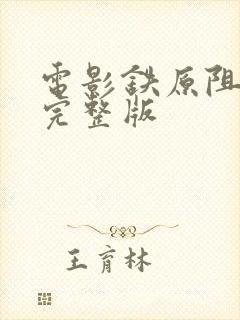 電影鉄原阻
完整版
王育林